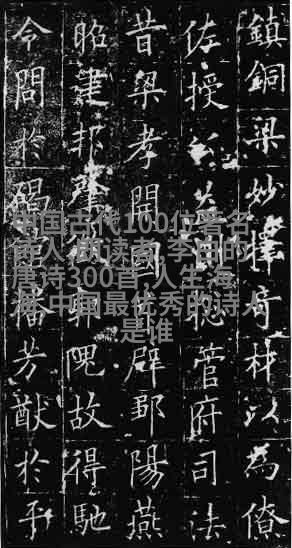 鎮銅梁妙擇奇材以為僚
佐授公益州總管府司法
昔梁孝開國首辟鄒陽燕
昭建邦肇徵郭隗故得馳
令問於碣館播芳猷於平
中国古代100位著名
诗人-朗读者-李白的
唐诗300首-人生海
海-中国最优秀的诗人
是谁